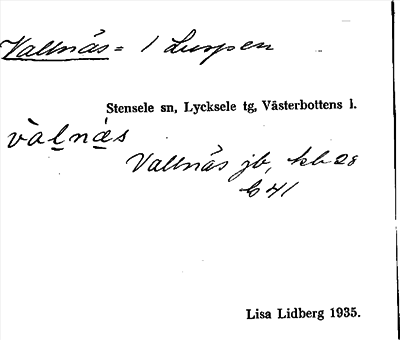 Vallnäs = / Luspen
Stensele sn, Lycksele tg, Västerbottens l.
vàl̲na̲s
Vallnäs jb, kb 28
C 41
Lisa Lidberg 1935.